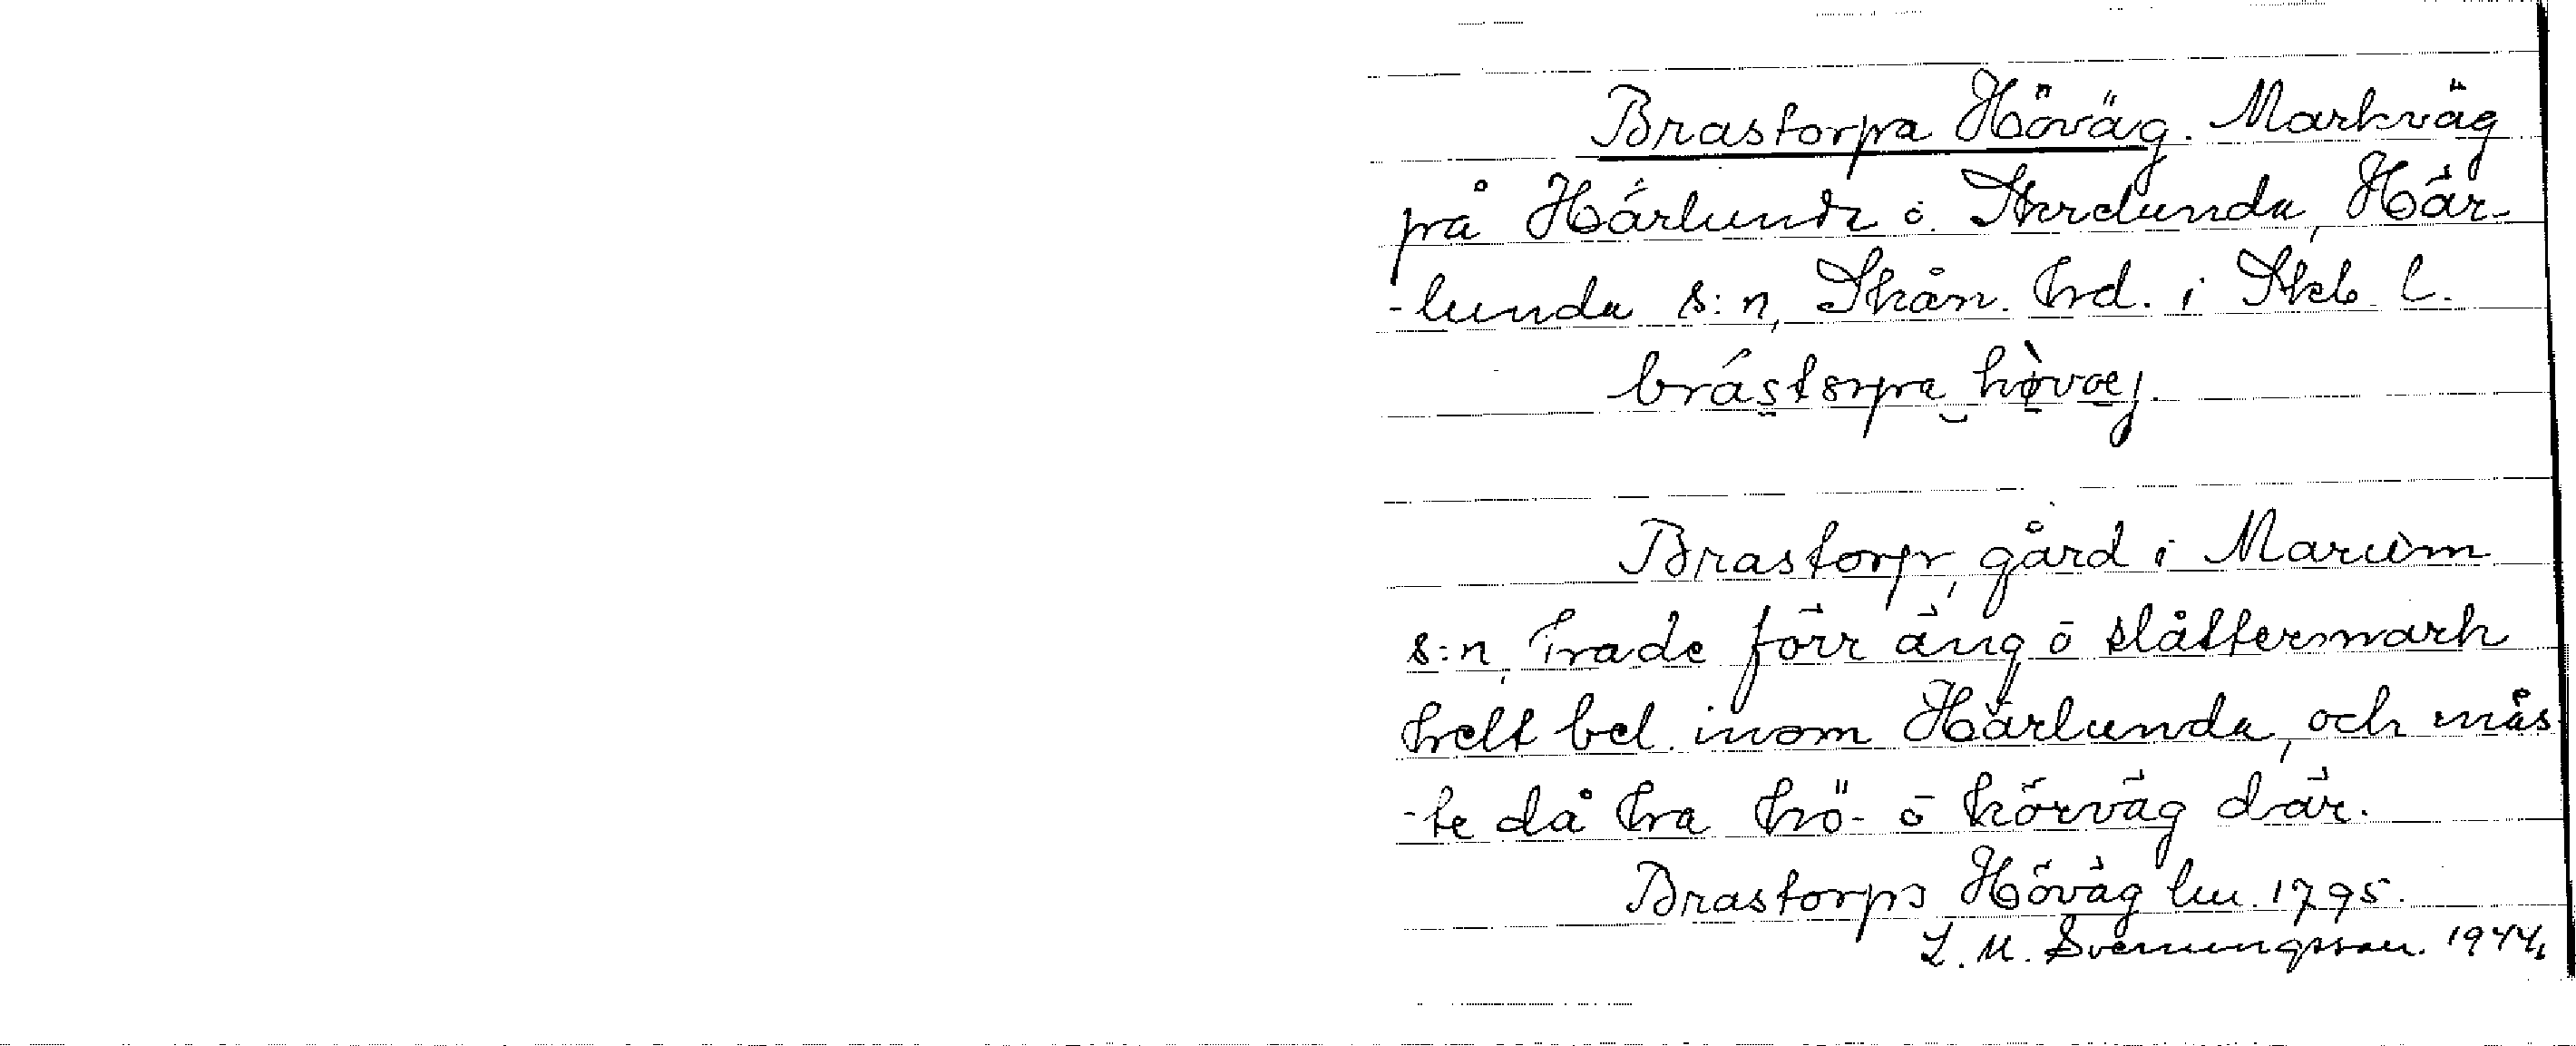 Brastorpa Höväg. Markväg
på Härlunda i Härlunda, Här-
-lunda s:n, Skån. hrd. i Skb. l.
brástorpa hòvæg.
Brastorp, gård i Marum
s:n, hade förr äng o slåttermark
helt bel. inom Härlunda, och mås-
-te då ha hö- o körväg där.
Brastorps Höväg lm. 1795.
L. M. Svenungsson. 1944.